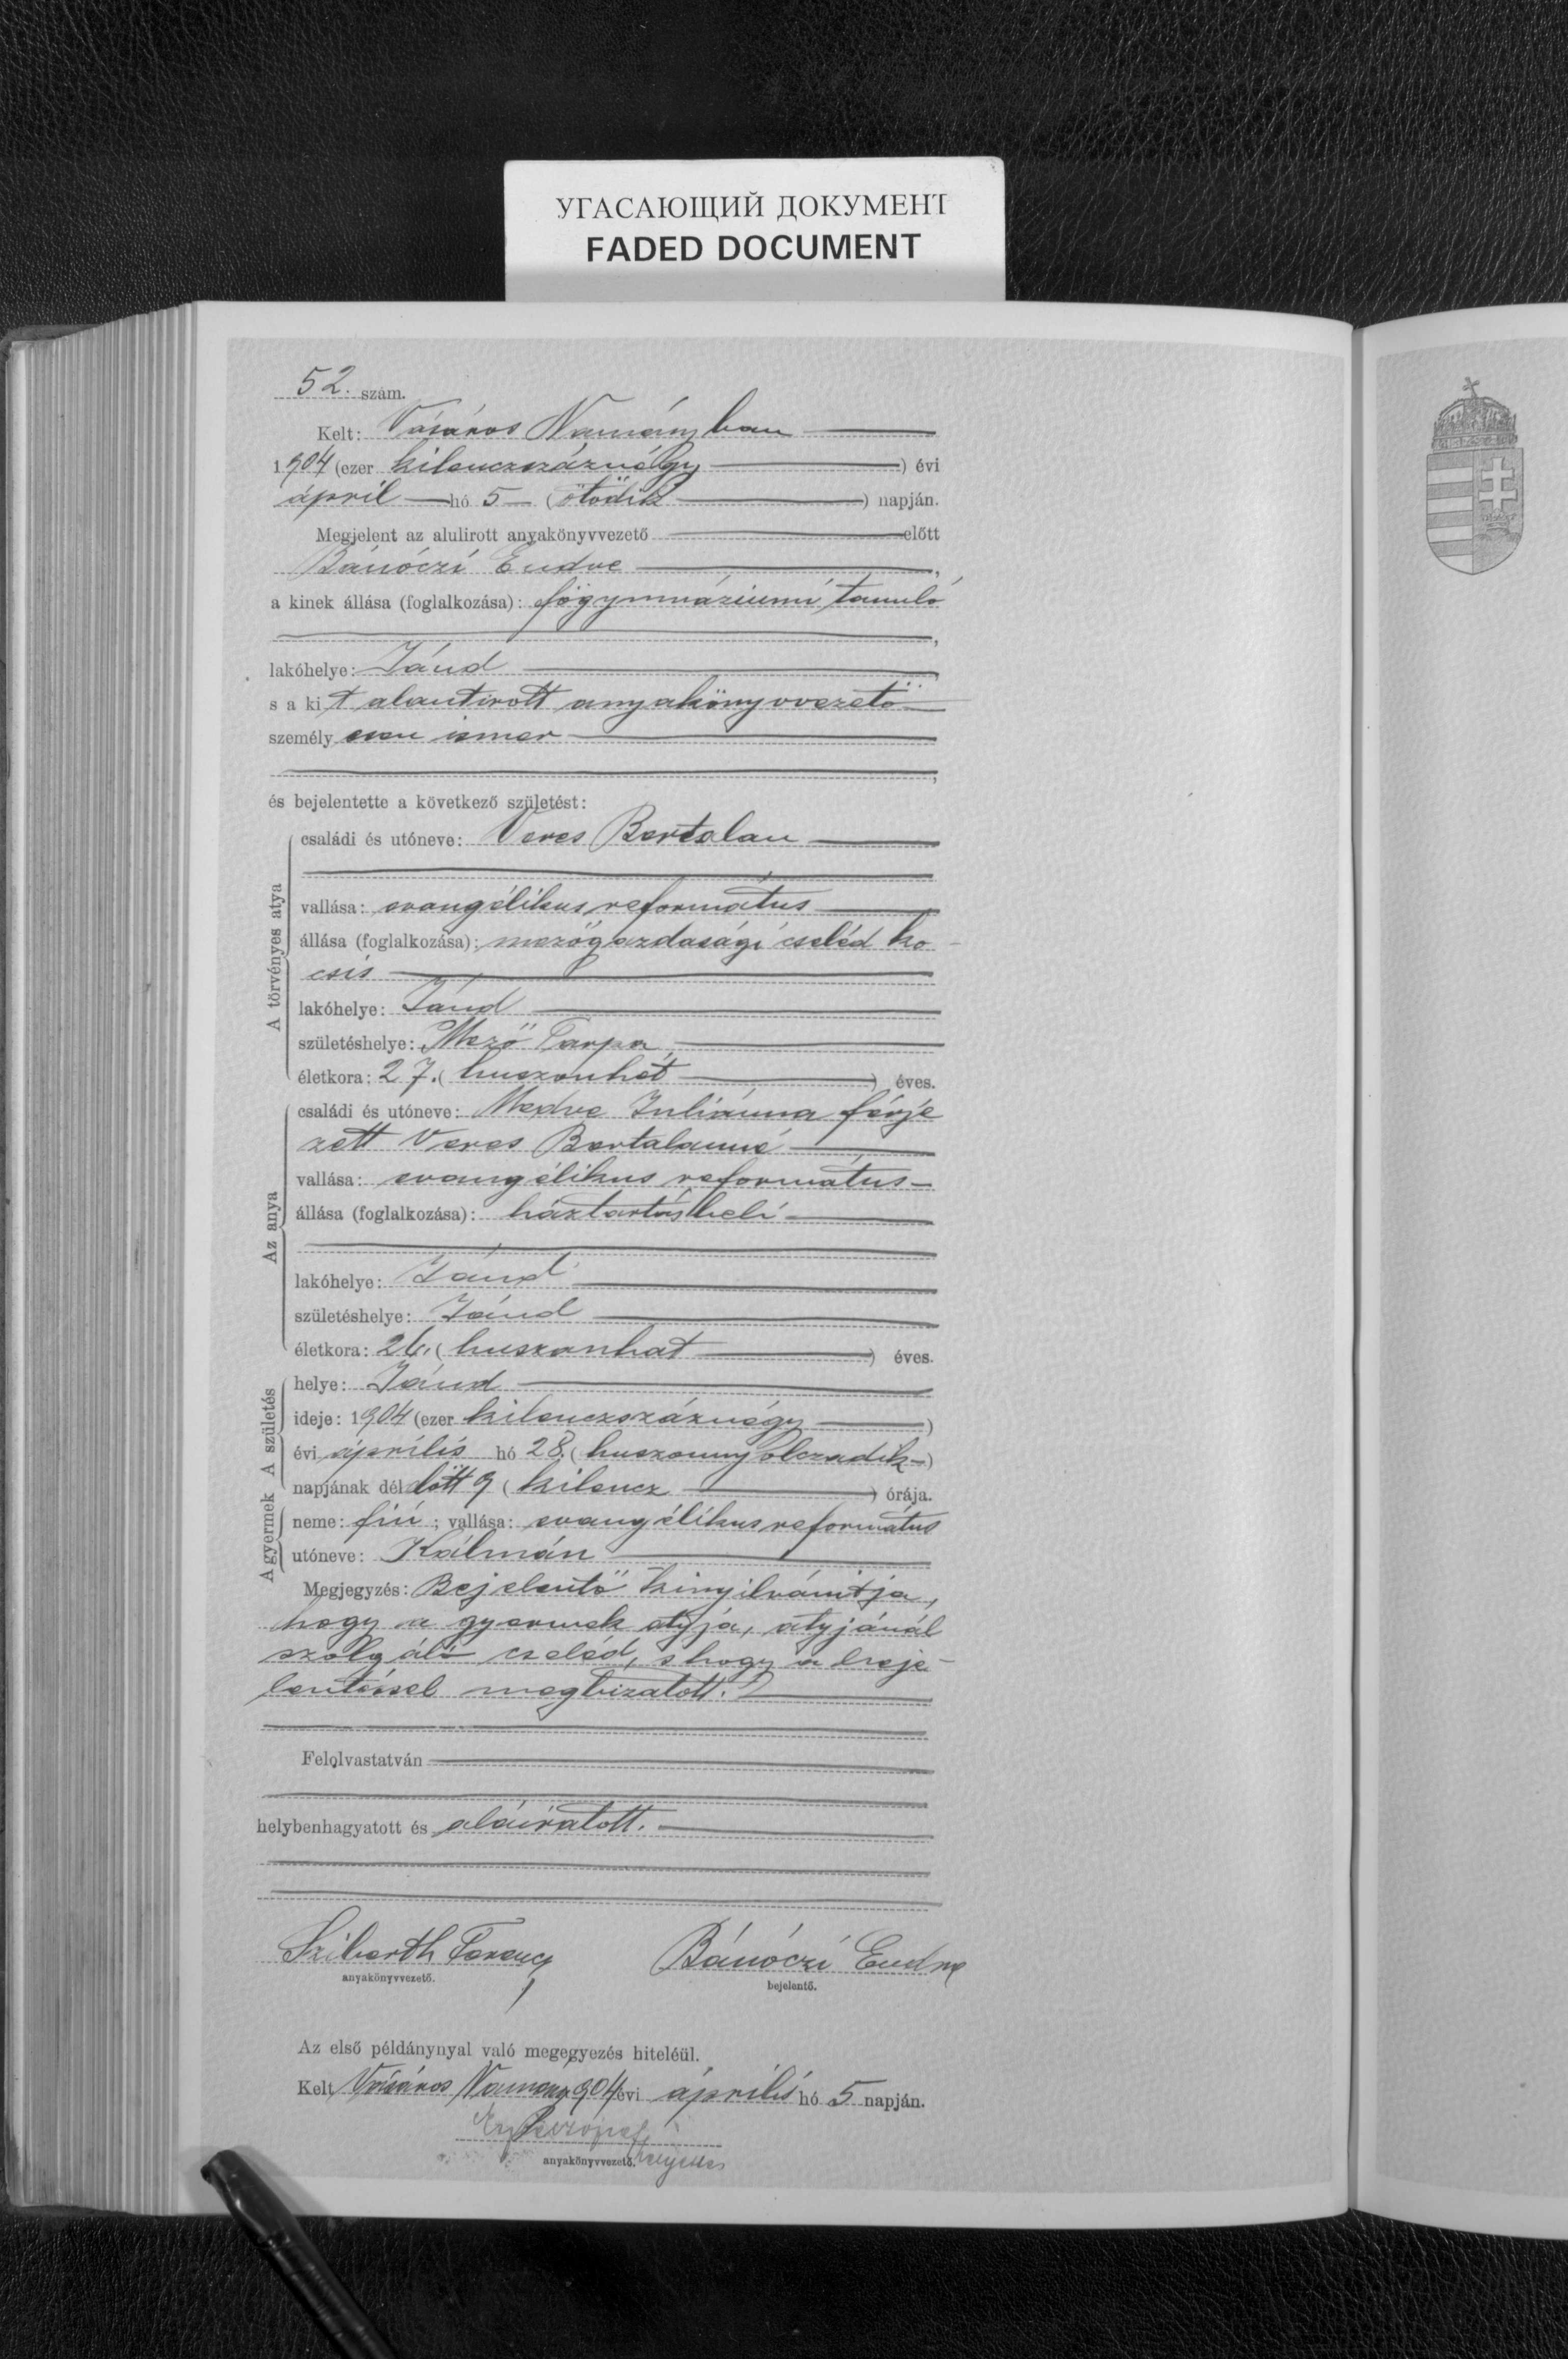 УГАСАЮЩИЙ ДОКУМЕНТ
FADED DOCUMENT
52. szám.
Kelt: Vásáros Naményban
1904 (ezer kilenczszáznégy) évi
ápril hó 5 (ötödik) napján.
Megjelent az alulirott anyakönyvvezető előtt
Bánóczi Endre,
a kinek állása (foglalkozása): főgymnáziumi tanuló,
lakóhelye: Jánd,
s a kit alantirott anyakönyvvezető
személyesen ismer,
és bejelentette a következő születést:
A törvényes atya
családi és utóneve: Veres Bertalan
vallása: evangélikus református
állása (foglalkozása): mezőgazdasági cseléd ko
csis
lakóhelye: Jánd
születéshelye: Mező Tarpa
életkora: 27. (huszonhét) éves.
Az anya
családi és utóneve: Medve Juliánna férje
zett Veres Bertalanné
vallása: evangélikus református
állása (foglalkozása): háztartásbeli
lakóhelye: Jánd
születéshelye: Jánd
életkora: 26. (huszonhat) éves.
A születés
helye: Jánd
ideje: 1904 (ezer kilenczszáznégy)
évi április hó 28. (huszonnyolczadik)
napjának délelőtt 9 (kilencz) órája.
A gyermek
neme: fiú; vallása: evangélikus református
utóneve: Kálmán
Megjegyzés: Bejelentő kinyilvánitja,
hogy a gyermek atyja, atyjánál
szolgáló cseléd, s hogy a beje-
lentéssel megbizatott.
Felolvastatván
helybenhagyatott és aláiratott.
Sziberth Ferencz Bánóczi Endre
anyakönyvvezető. bejelentő.
Az első példánynyal való megegyezés hiteléül.
Kelt Vásáros Namény 904 évi április hó 5 napján.
anyakönyvvezető. helyettes